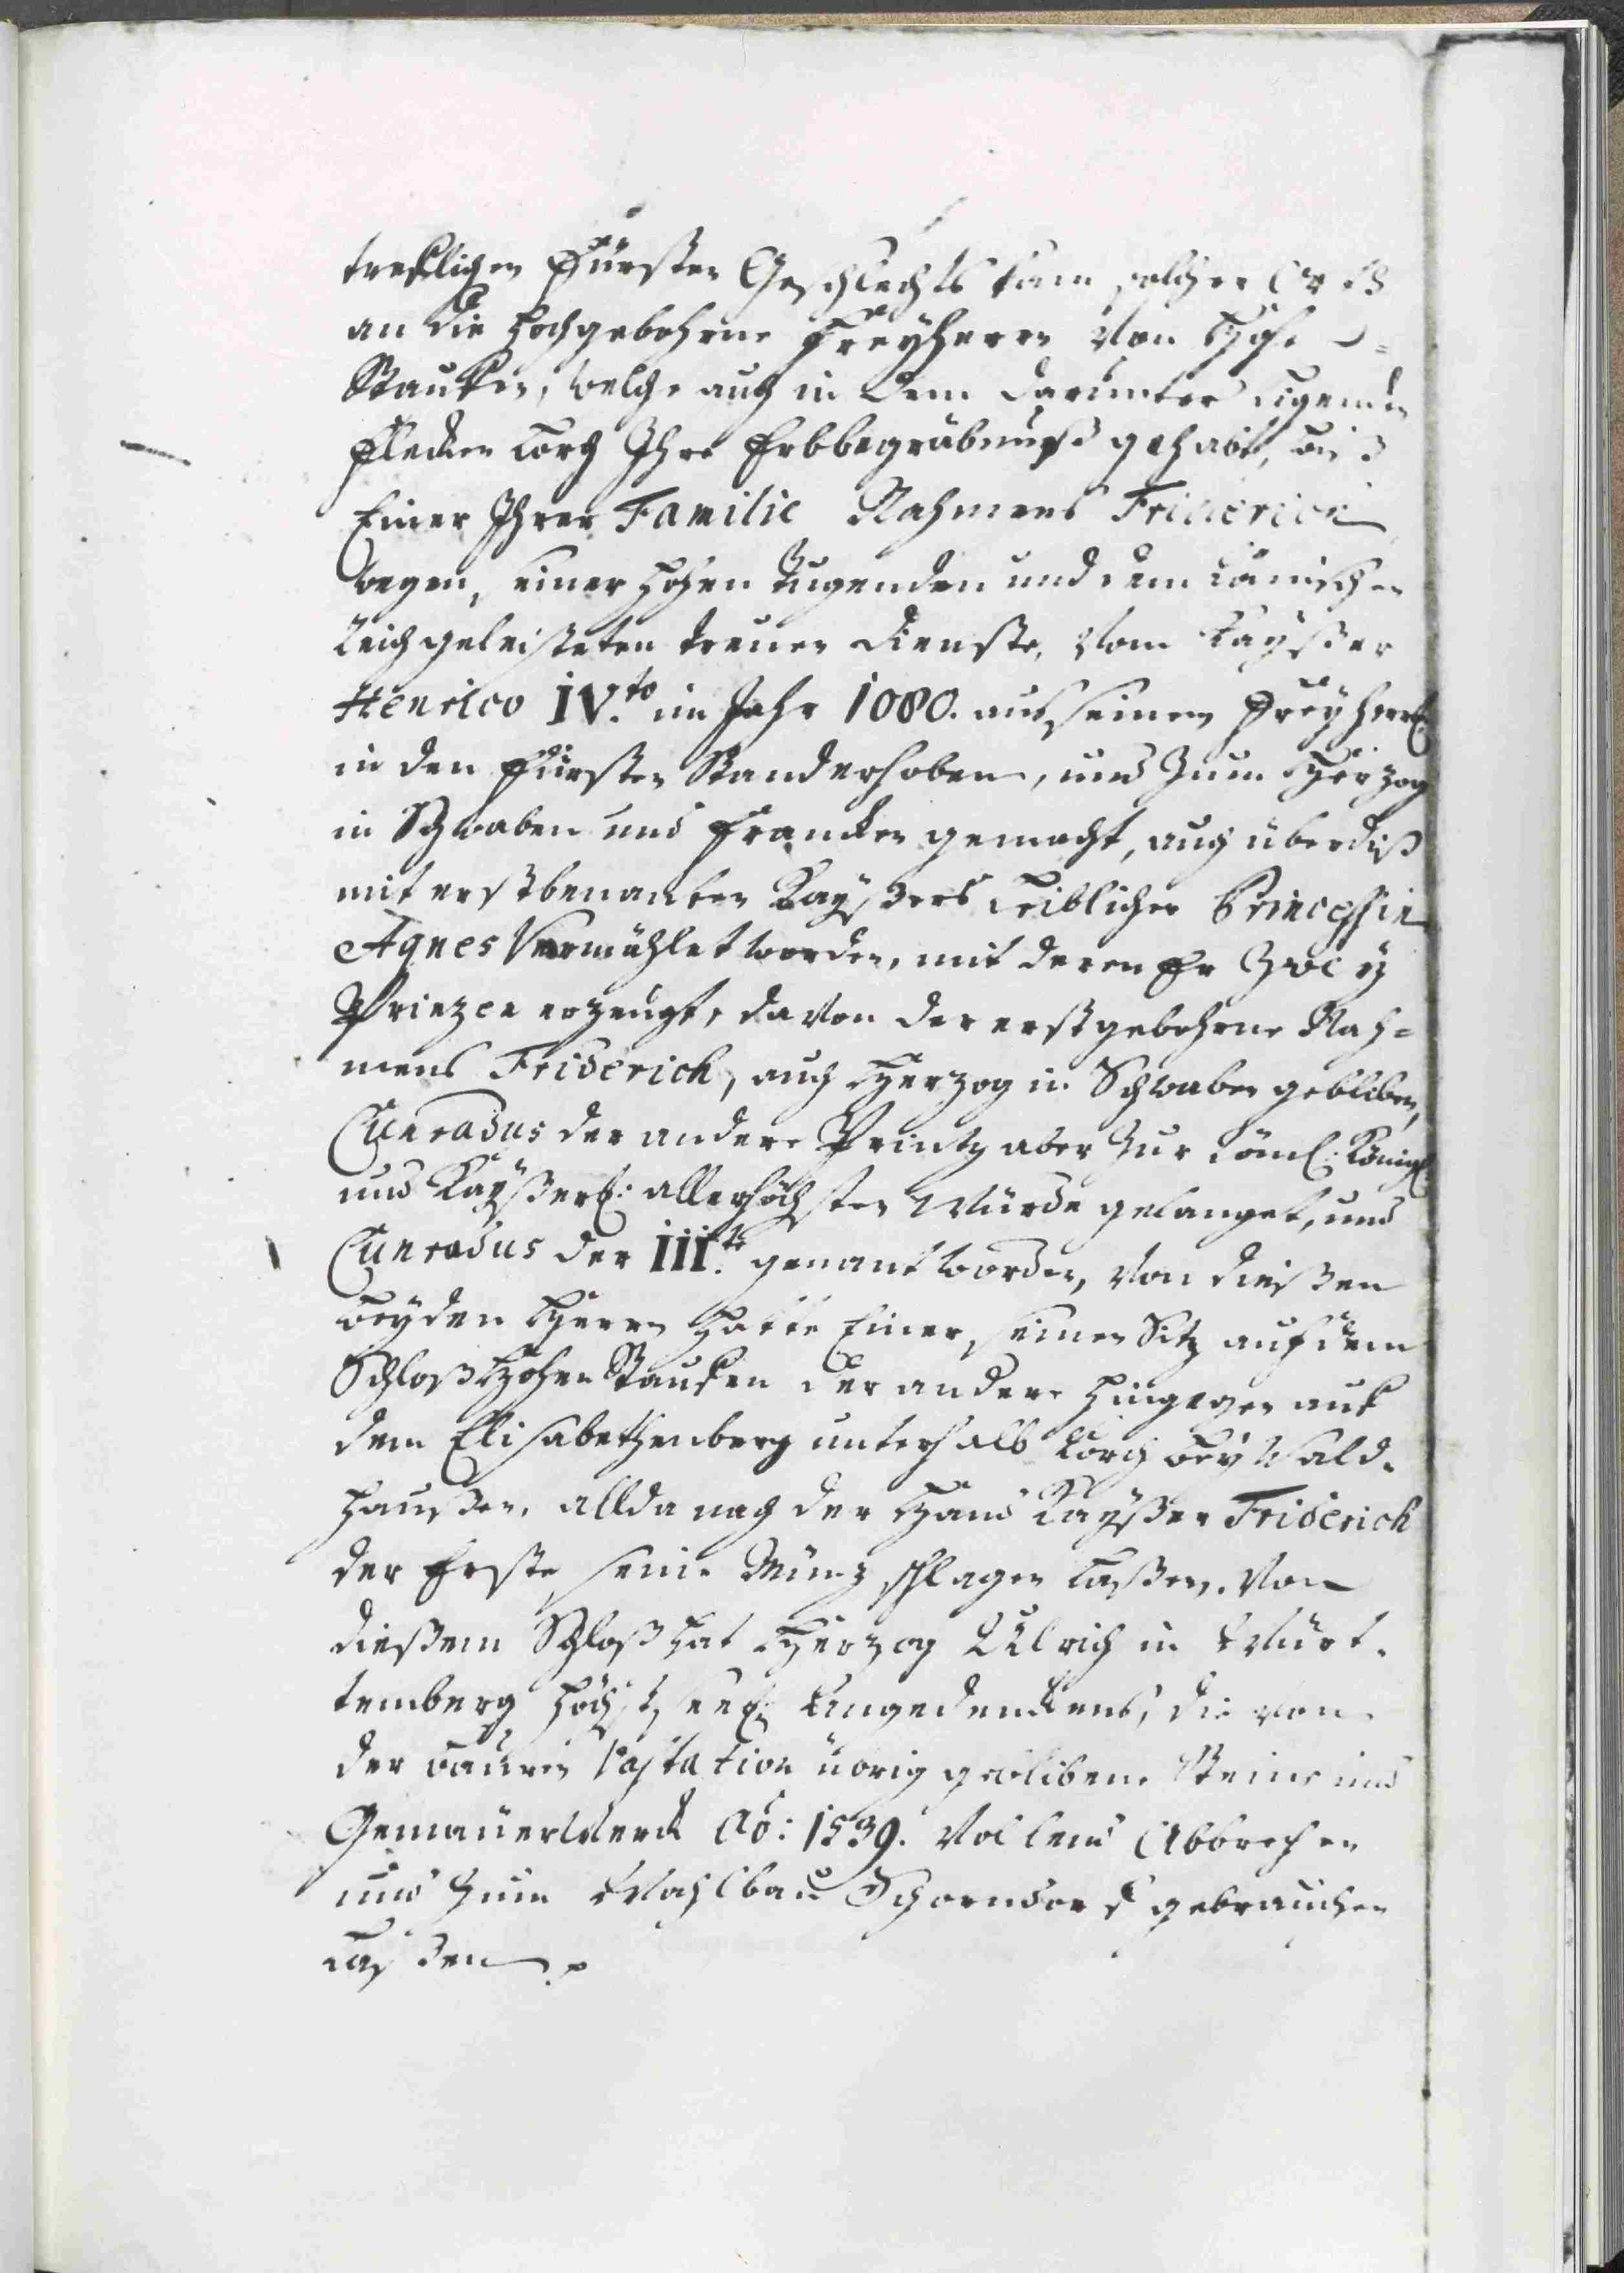 trefflichen Fürsten Geschlechts kam solcher
an die Hochgebohrne Freyherrn von Hohe=
Stauffen, welche auch in dem darunter ligenden
Flecken Lorch Ihre Erbbegräbnuß gehabt, biß
Einer Ihrer Familie Nahmens Friderich
wegen seiner Hohen Tugenden und dem Römischen
Reich geleisteten treuen Dienste, vom Kayßer
Henrico IV.to im Jahr 1080. auß seinem Freyherrl:
in den Fürsten Stand erhoben, und zum Herzog
in Schwaben und Francken gemacht, auch überdiß
mit erst benanten Kayßers Leiblicher Princessin
Agnes Vermählet worden, mit deren Er Zwey
Prinzen erzeugt, davon der erstgebohrne Nah=
mens Friderich, auch Herzog in Schwaben gebliben,
Cunradus der andere Printz aber zur Röml: Königl:
und Kayßerl: allerhöchsten Würde gelanget, und
Cunradus der III.te genant worden, von dießen
beyden Herrn hatte Einer, seinen Sitz auf dem
Schloß HohenStauffen der andere hingegen auf
dem Elisabethenberg unterhalb Lorch bey Wald-
haußen, allda nach der Hand Kayßer Friderich
der Erste seine Münz schlagen laßen. Von
dießem Schloß hat Herzog Ulrich in Würt-
temberg höchst seel: Angedenckens, die von
der Bauren Vastation übrig geblibene Steine und
Gemäuerwerck Ao: 1539. Vollend Abbrechen
und zum Wahlbau Schorndorf gebrauchen
laßen.